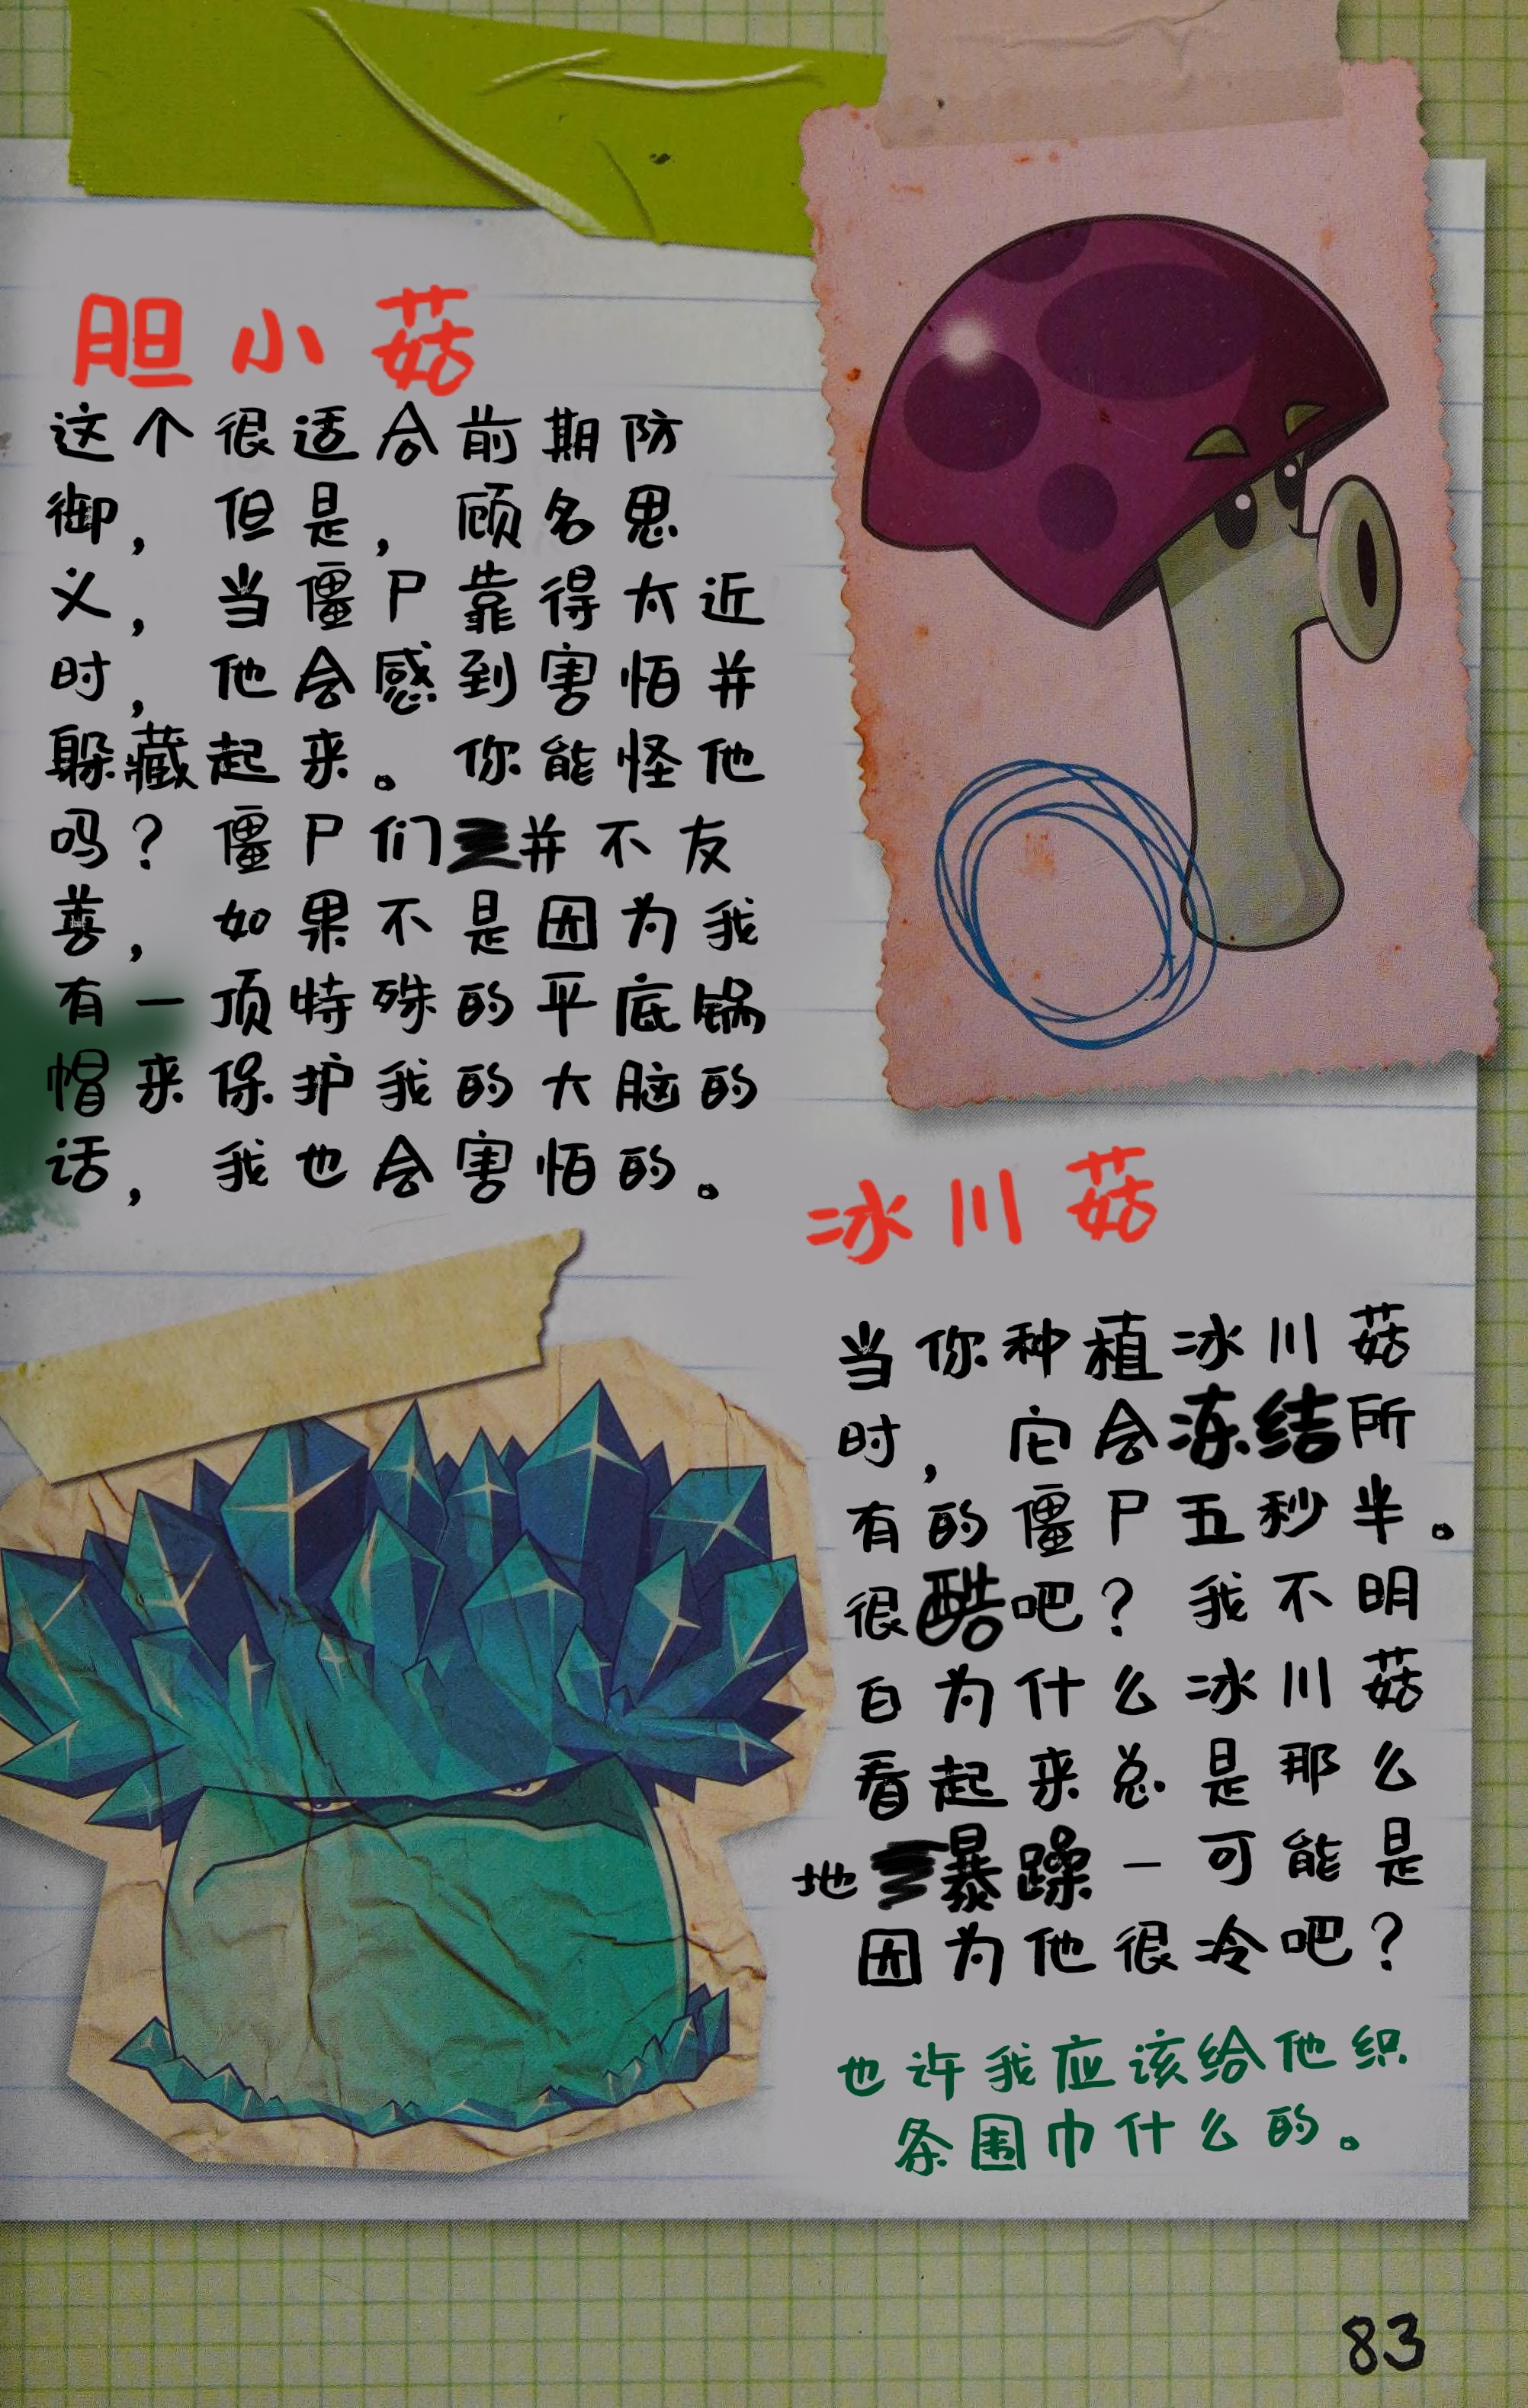 胆小菇
这个很适合前期防
御，但是，顾名思
义，当僵尸靠得太近
时，他会感到害怕并
躲藏起来。你能怪他
吗？僵尸们并不友
善，如果不是因为我
有一顶特殊的平底锅
帽来保护我的大脑的
话，我也会害怕的。
冰川菇
当你种植冰川菇
时，它会冻结所
有的僵尸五秒半。
很酷吧？我不明
白为什么冰川菇
看起来总是那么
地暴躁－可能是
因为他很冷吧？
也许我应该给他织
条围巾什么的。
83